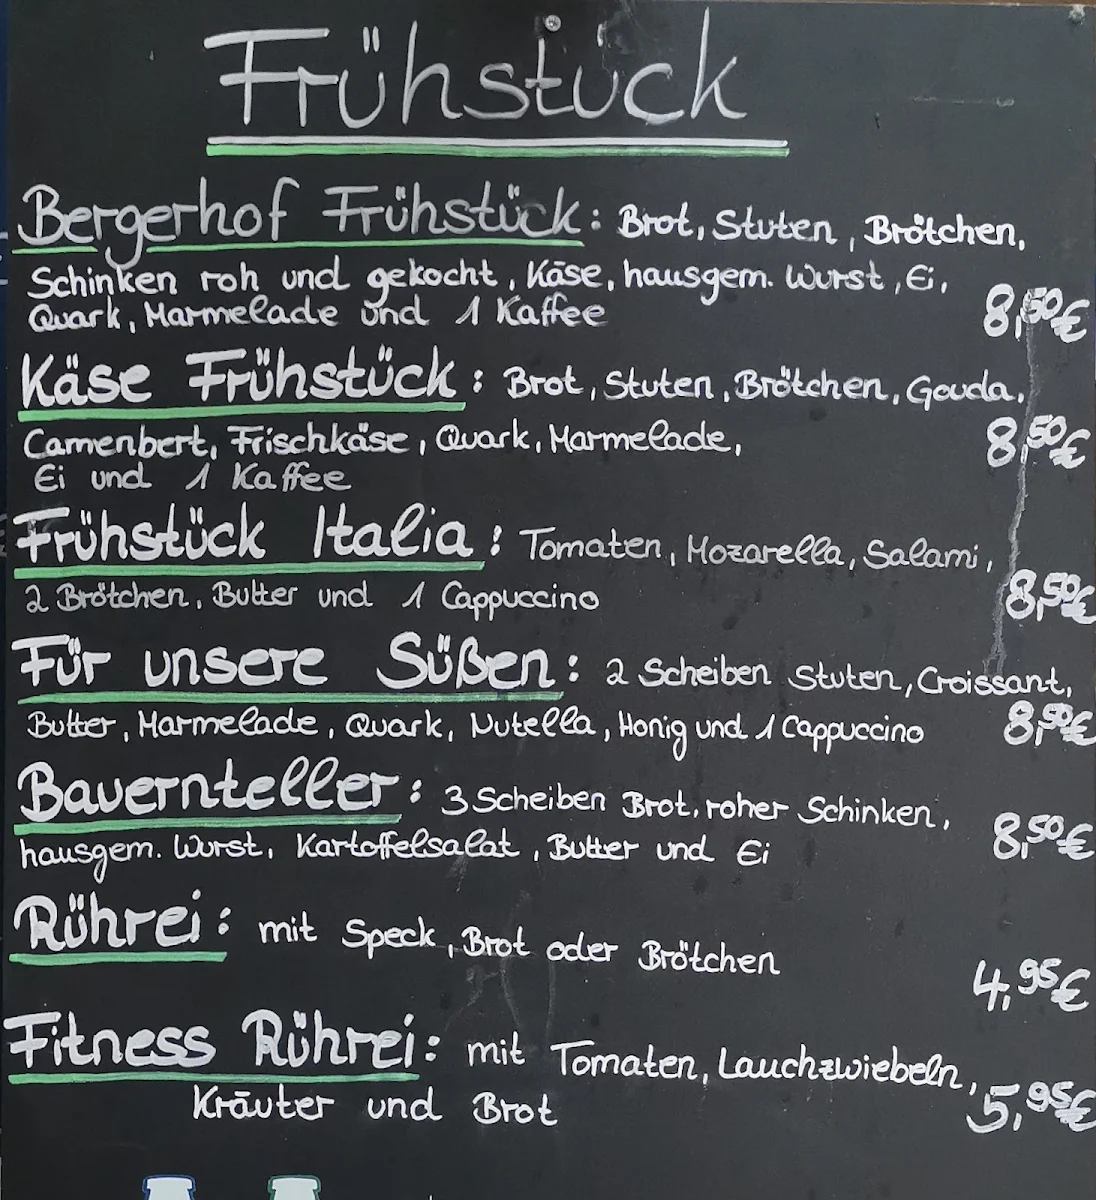 Frühstück
Bergerhof Frühstück: Brot, Stuten, Brötchen,
Schinken roh und gekocht, Käse, hausgem. Wurst, Ei,
Quark, Marmelade und 1 Kaffee 8,50€
Käse Frühstück: Brot, Stuten, Brötchen, Gouda,
Camenbert, Frischkäse, Quark, Marmelade, 8,50€
Ei und 1 Kaffee
Frühstück Italia: Tomaten, Mozarella, Salami,
2 Brötchen, Butter und 1 Cappuccino 8,50€
Für unsere Süßen: 2 Scheiben Stuten, Croissant,
Butter, Marmelade, Quark, Nutella, Honig und 1 Cappuccino 8,50€
Bauernteller: 3 Scheiben Brot, roher Schinken,
hausgem. Wurst, Kartoffelsalat, Butter und Ei 8,50€
Rührei: mit Speck, Brot oder Brötchen
4,95€
Fitness Rührei: mit Tomaten, Lauchzwiebeln,
Kräuter und Brot 5,95€